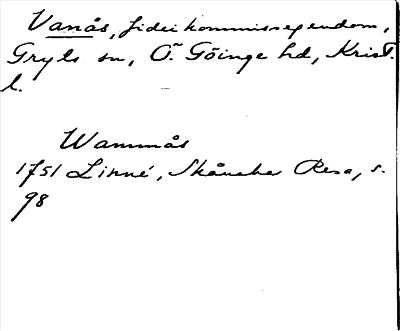 Vanås, fideikommissegendom,
Gryts sn, Ö. Göinge hd, Krist.
l.
Wammås
1751 Linné, Skånska Resa, s.
98